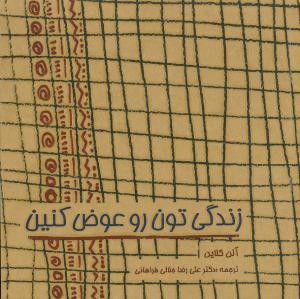 زندگی تون رو عوض کنین
آلن کلاین
ترجمه دکتر علی رضا جلالی فراهانی